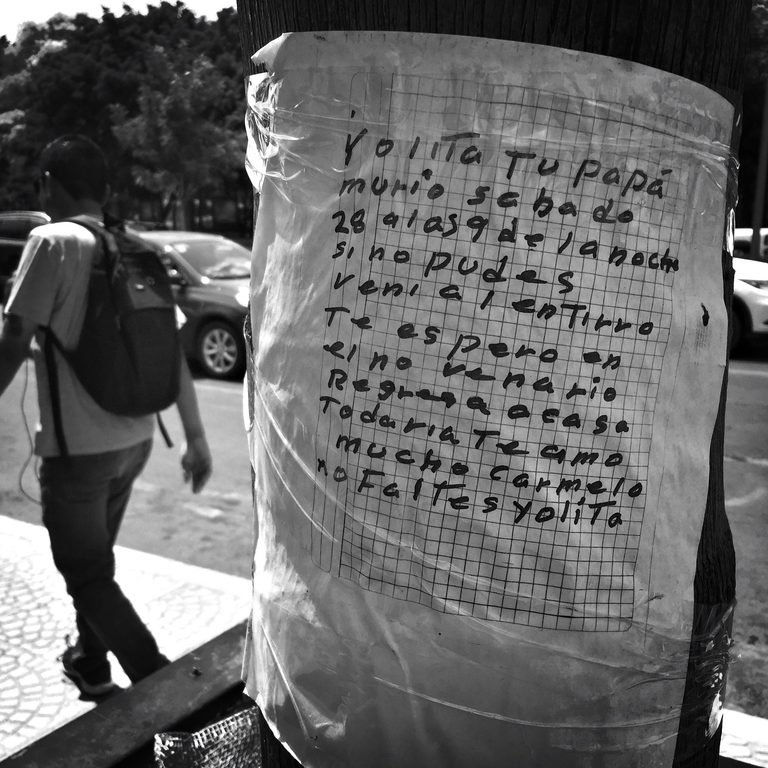 Yolita Tu papá
murio sabado
28 a las 9 de la noche
si no pudes
veni al entirro
Te espero en
el no venario
Regresa a casa
Todaria Te amo
mucho Carmelo
no Faltes Yolita